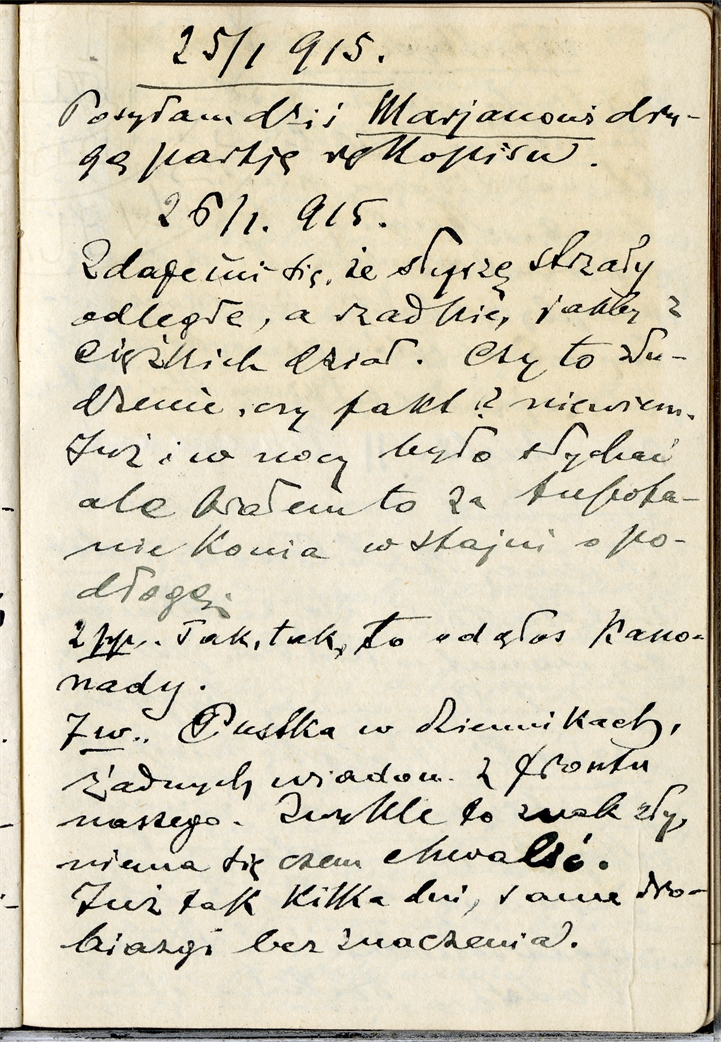 25/1 915.
Posyłam dziś Marjanowi dru-
gą partję rękopisu.
26/1. 915.
Zdaje mi się, że słyszę strzały
odległe, a rzadkie, jakby z
ciężkich dział. Czy to złu-
dzenie, czy fakt? niewiem.
Już i w nocy było słychać
ale brałem to za tupota-
nie konia w stajni o po-
dłogę.
2 pp. Tak, tak, to odgłos kano-
nady.
7 w. Pustka w dziennikach,
żadnych wiadom. z frontu
naszego. Zwykle to znak zły,
niema się czem chwalić.
Już tak kilka dni, same dro-
biazgi bez znaczenia.